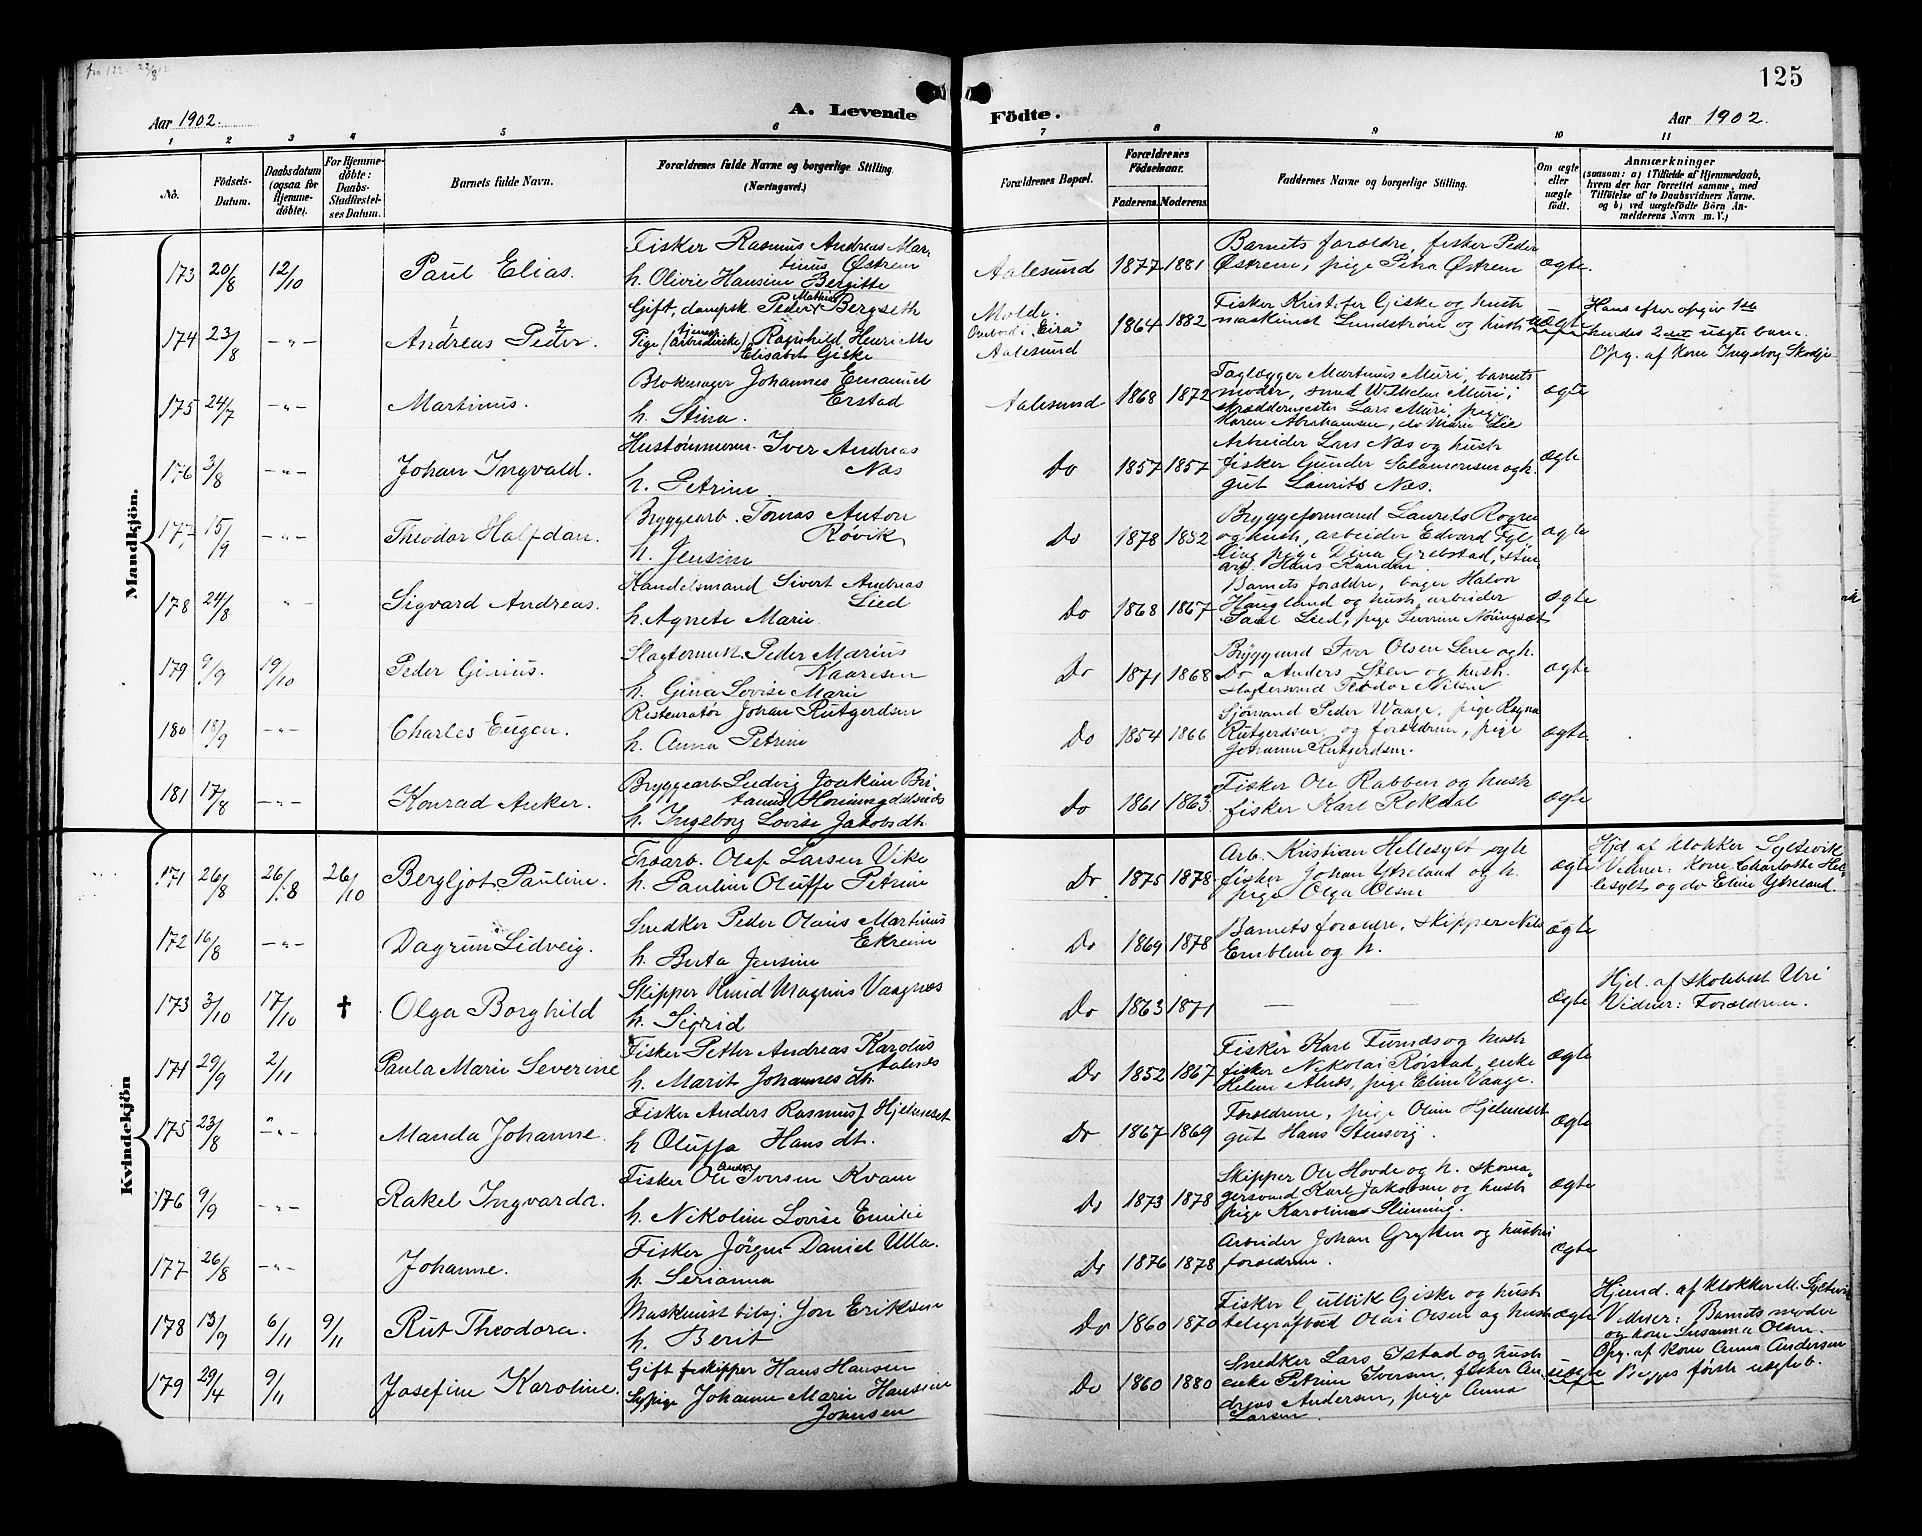 125
Aar 1902.
A. Levende Födte.
Aar 1902.
1 2 3 4 5 6 7 8 9 10 11
No.
Födsels-Datum.
Daabsdatum (ogsaa for Hjemmedöbte).
For Hjemmedöbte: Daabs-Stadfæstelses Datum.
Barnets fulde Navn.
Forældrenes fulde Navne og borgerlige Stilling. (Næringsvei.)
Forældrenes Bopæl.
Forældrenes Födselsaar.
Faderens. Moderens.
Faddernes Navne og borgerlige Stilling.
Om ægte eller uægte födt.
Anmærkninger
(saasom: a) i Tilfælde af Hjemmedaab, hvem der har forrettet samme, med Tilföielse af to Daabsvidners Navne. og b) ved uægtefödte Börn Anmelderens Navn m. V.)
Mandkjön.
173 20/8 12/10 Paul Elias. Fisker Rasmus Andreas Martinus Østrem
h. Olivie Hansine Bergitte Aalesund 1877 1881 Barnets foreldre, fisker Peder Østrem, pige Petra Østrem ægte.
174 23/8 -"- Andreas Peder. Gift, dampsk Peder Mathias Bergseth
Pige (tjener, arbeiderske) Ragnhild Henriette Elisabet Giske Molde. Ombord i "Eira" Aalesund 1864 1882 Fisker Kristofer Giske og hustr maskinist Lundstrøm og hustr uægte Hans efter opgiv 1ste hendes 2det uægte barn. Opg. af Kone Ingeborg Skodje
175 24/7 -"- Martinus. Blokmager Johannes Emanuel Erstad
h. Stina. Aalesund 1868 1872 Taglægger Martinus Muri, barnets moder, smed Wilhelm Muri, skræddermester Lars Muri, pige Maren Abrahamsen, do Marie Lie ægte
176 3/8 -"- Johan Ingvald. Hustømmerm. Iver Andreas Næs
h. Petrine Do 1857 1857 Arbeider Lars Næs og hustr fisker Gunder Salamonsen og h. gut Laurits Næs. ægte
177 15/9 -"- Theodor Halfdan. Bryggearb. Tomas Anton Røvik
h. Jensine Do 1878 1882 Bryggeformand Laurits Rogne og hustr, arbeider Edvard pige Dina Grebstad, Hans ægte
178 24/8 -"- Sigvard Andreas. Handelsmand Sivert Andreas Lied
h. Agnete Marie. Do 1868 1867 Barnets foreldre, bager Halvor Haugland og hustr, arbeider Paul Lied, pige Severine ægte
179 9/9 19/10 Peder Ginius. Peder Marius Kaaresen
h. Gina Lovise Marie Do 1871 1868 Iver Olsen og h. Do Anders og hustr. Teodor Nilsen ægte
180 18/9 -"- Charles Eugen. Restauratør Johan Rutgerdsen
h. Anna Petrine Do 1854 1866 Sjømand Peder Waage, pige Ragna Rutgerdsen, og foreldrene, pige Johanne Rutgerdsen. ægte.
181 17/8 -"- Konrad Anker. Bryggearb Ludvig Joakim
h. Ingeborg Lovise Jakobsdt. Do 1861 1863 Fisker Ole Rabben og hustr fisker Karl Rekdal ægte
Kvindekjön
171 26/8 26/8 26/10 Bergljot Pauline. Olaf Larsen Vike
h. Pauline Oluffe Petrine Do 1875 1878 Arb. Kristian Hellesylt fisker Johan Ytreland og h. pige Olga Olsen ægte Hjd af klokker Syltevik Vidner: Kone Charlotte Hellesylt og do Eline Ytreland.
172 16/8 -"- Dagrun Lidveig. Snedker Peder Olaus Martinus Ekrem
h. Berta Jensine Do 1869 1878 Barnets foreldre, skipper Nils Emblem og h. ægte
173 3/10 17/10 † Olga Borghild Skipper Knud Magnus Vaagnæs
h. Sigrid Do 1863 1871 — — ægte Hjd. af skolebest Uri Vidner: Forældrene.
174 29/9 2/11 Paula Marie Severine Fisker Petter Andreas Karolus Aalnæs
h. Marit Johannesdt. Do 1852 1867 Fisker Karl og hustr fisker Nikolai Rørstad, enke Helene Alnæs, pige Eline Vaage. ægte
175 23/8 -"- Manda Johanne. Fisker Anders Rasmus Hjelmeset
h Oluffa Hansdt. Do 1867 1869 Foreldrene, pige Oline Hjelmeset gut Hans Stensvig. ægte
176 9/9 -"- Rakel Ingvarda. Fisker Ole Andr. Iversen Kvam
h. Nikoline Lovise Emilie Do 1873 1878 Skipper Ole Hovde og h. skomagersvend Karl Jakobsen og hustr pige Karoline ægte
177 26/8 -"- Johanne. Fisker Jörgen Daniel Ulla.
h. Serianna Do 1876 1878 Arbeider Johan og hustru foreldrene. ægte
178 13/9 6/11 9/11 Rut Theodora. Maskinist tilsj: Jon Eriksen
h. Berit Do 1860 1870 Fisker Giske og hustr telegrafbud Olai Olsen og hustr ægte Hjemd. af klokker M. Syltevik Vidner: Barnets moder og kone Susanna Olsen.
179 29/4 9/11 Josefine Karoline. Gift skipper Hans Hansen
Sypige Johanne Marie Hansine Johnsen Do 1860 1880 Snedker Lars Istad og hustr enke Petrine Iversen, fisker Andreas Andersen, pige Anna Larsen uægte Opg. af kone Anna Andersen Begges første uægte b.